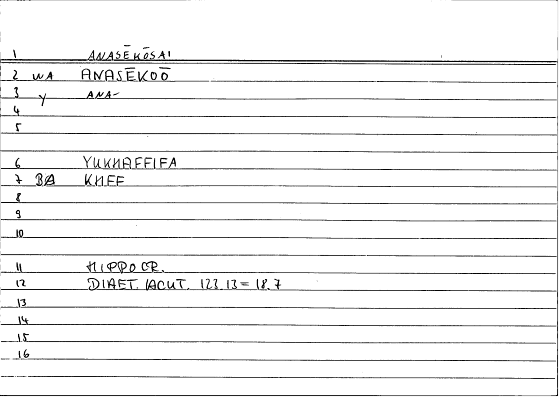 1 ANASĒKŌSAI
2 WA ANASĒKOŌ
3 Y ANA-
4
5
6 YUKHAFFIFA
7 BA KHFF
8
9
10
11 HIPPOCR.
12 DIAET. IACUT. 123.13 = 18.7
13
14
15
16